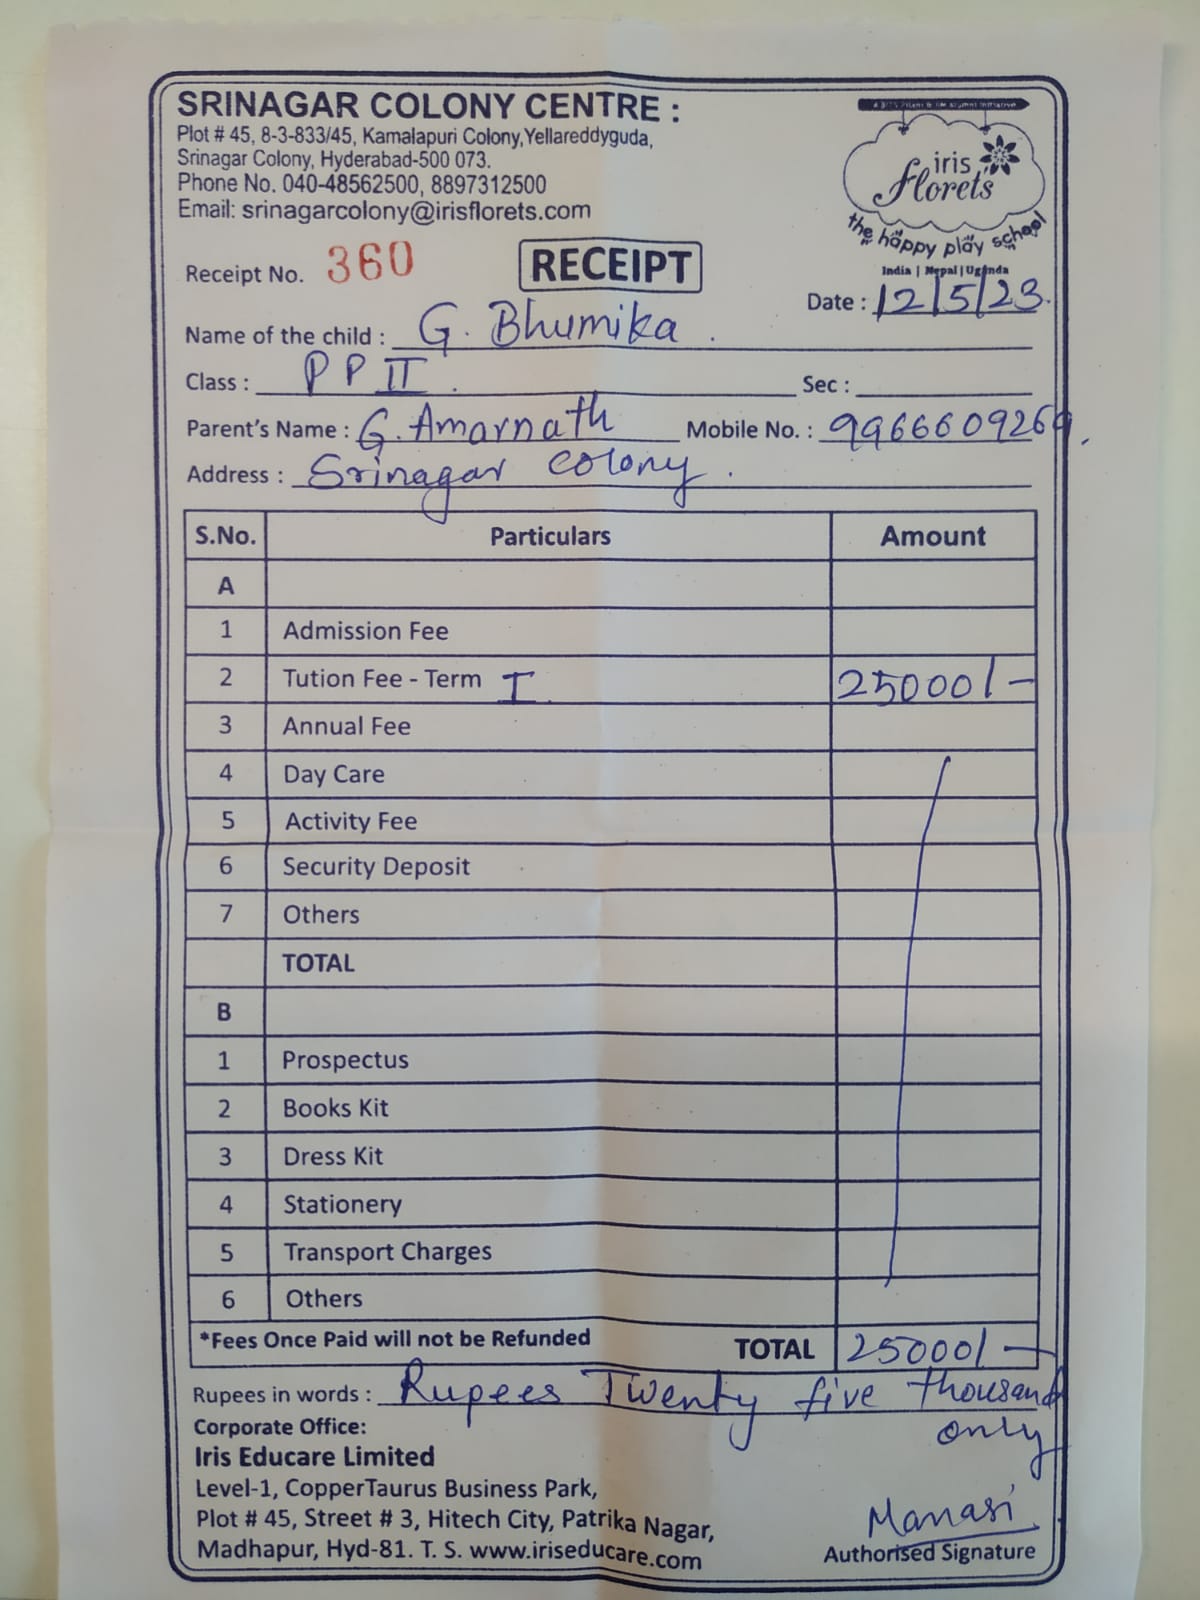 SRINAGAR COLONY CENTRE :
Plot # 45, 8-3-833/45, Kamalapuri Colony,Yellareddyguda,
Srinagar Colony, Hyderabad-500 073.
Phone No. 040-48562500, 8897312500
Email: srinagarcolony@irisflorets.com
iris
florets
the happy play school
India | Nepal | Uganda
Receipt No. 360
RECEIPT
Date : 12/5/23.
Name of the child : G. Bhumika .
Class : P P II . Sec :
Parent's Name : G. Amarnath Mobile No. : 9966609269.
Address : Srinagar colony .
S.No. Particulars Amount
A
1 Admission Fee
2 Tution Fee - Term I 25000/-
3 Annual Fee
4 Day Care
5 Activity Fee
6 Security Deposit
7 Others
TOTAL
B
1 Prospectus
2 Books Kit
3 Dress Kit
4 Stationery
5 Transport Charges
6 Others
*Fees Once Paid will not be Refunded TOTAL 25000/-
Rupees in words : Rupees Twenty five thousand
only
Corporate Office:
Iris Educare Limited
Level-1, CopperTaurus Business Park,
Plot # 45, Street # 3, Hitech City, Patrika Nagar,
Madhapur, Hyd-81. T. S. www.iriseducare.com
Manasi
Authorised Signature